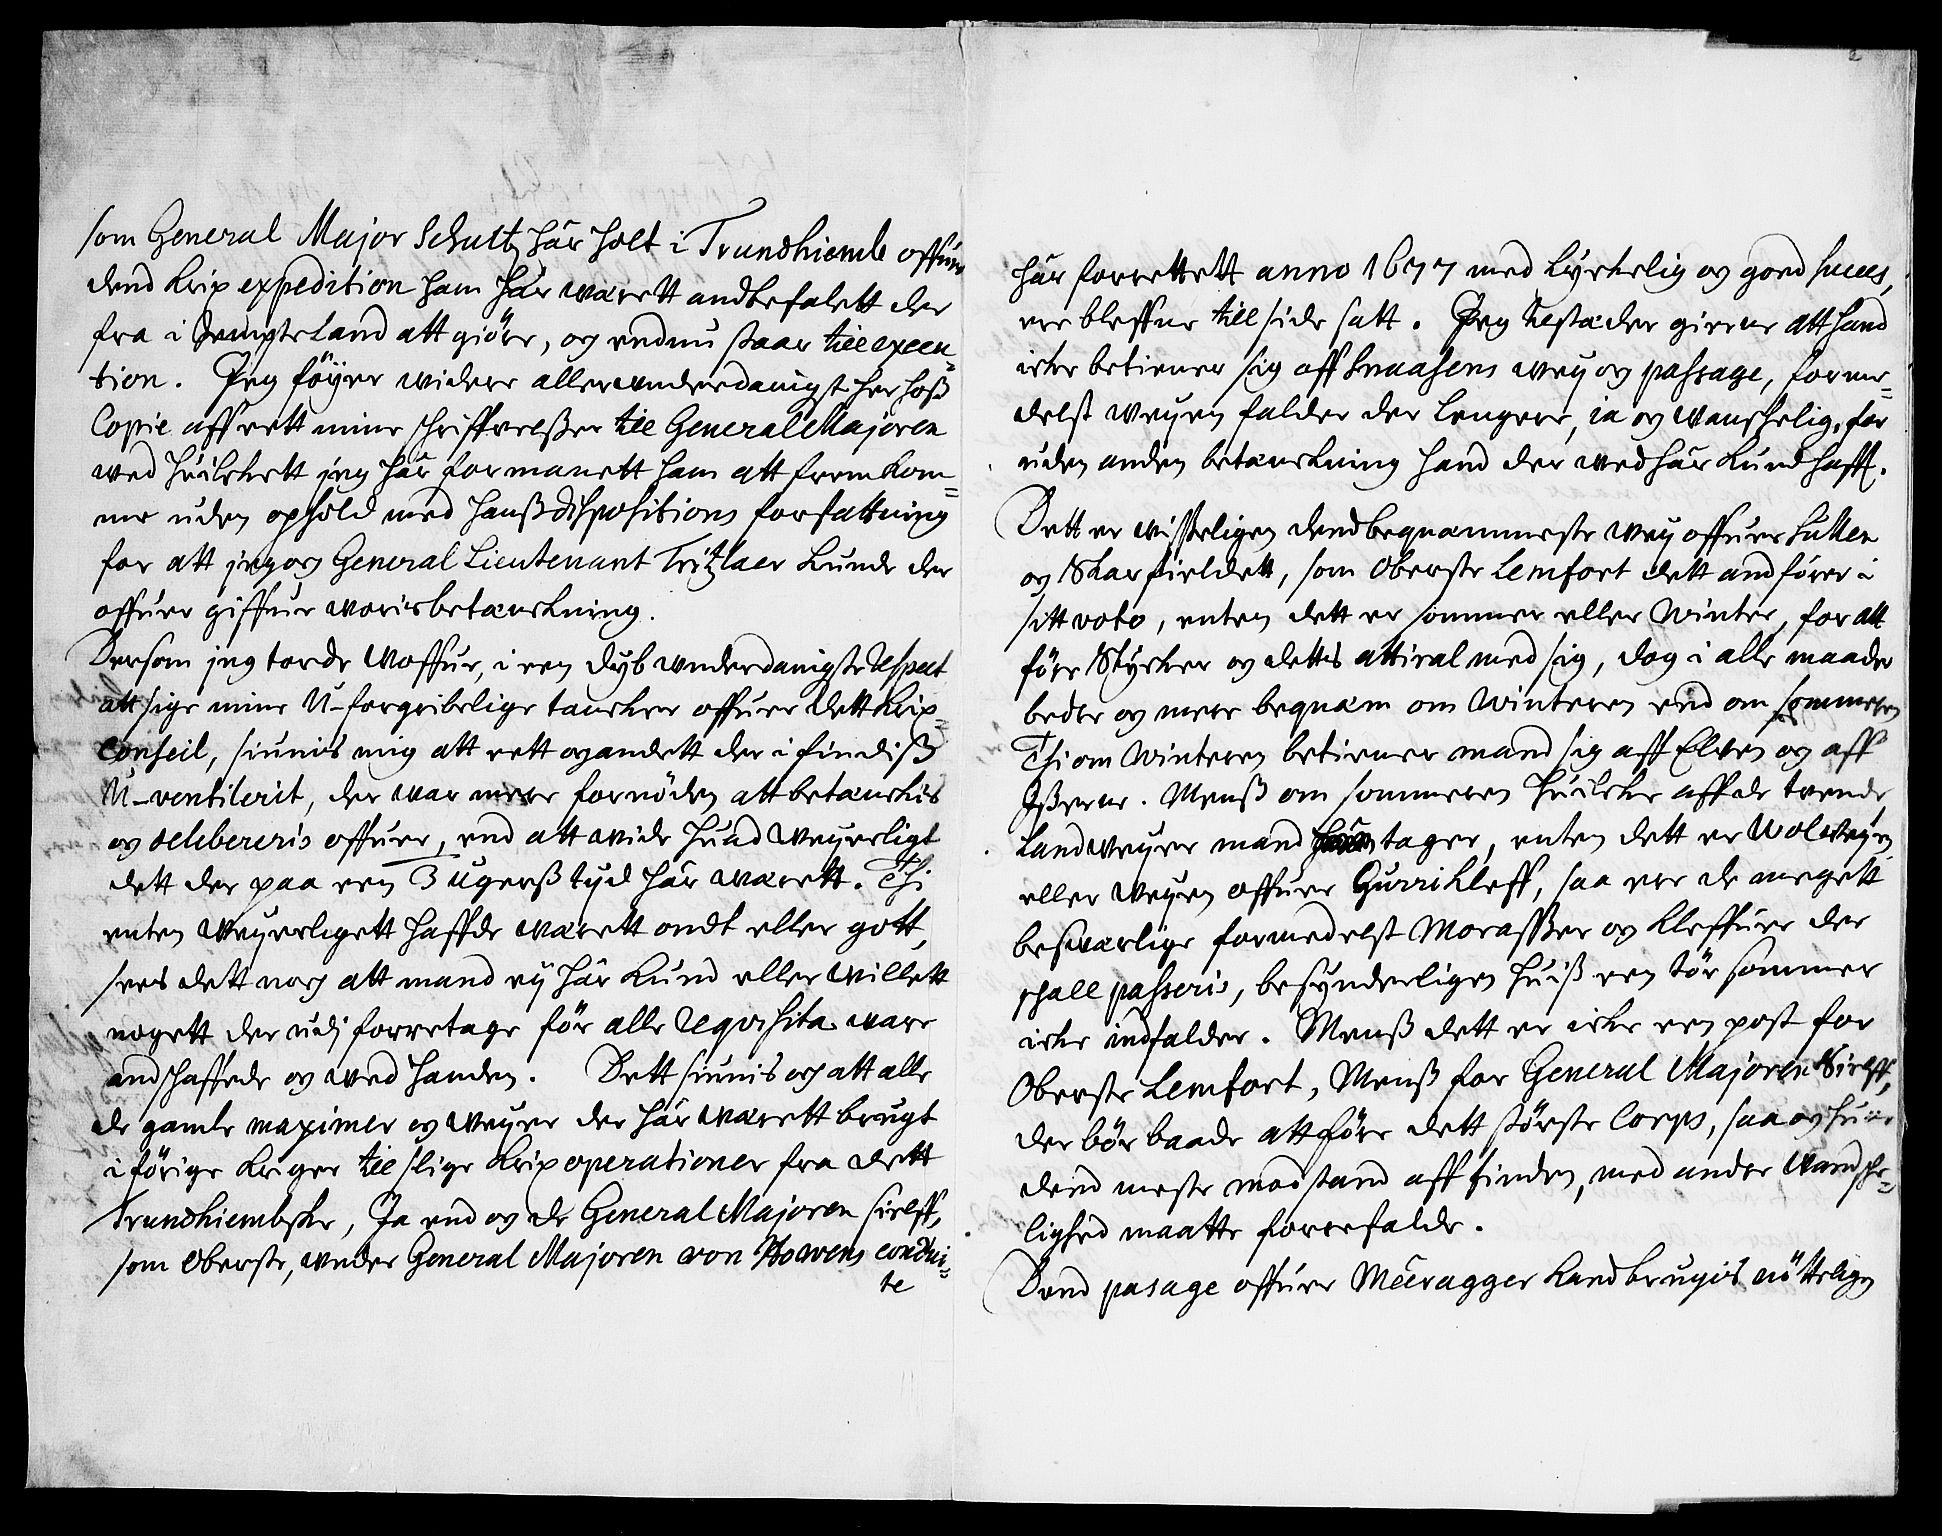 som General Major Schultz här holt i Trundhiemb offuer
dend Krix expedition ham här wärett andbefalett der
fra i Jempteland att giöre, og endnu staar till execu=
tion. Jeg föyer widere allerwnderdanigst her hoß
Copie aff ett mine schriffvelßer till General Majoren
wed huilchett jeg här formanett ham att fremkom=
me uden ophold med hanß dispositions forfattning
for att jeg og General Lieutenant Tritzlaer kunde der
offuer giffue woris betænckning.
Dersom jeg torde Woffue, i een dyb wnderdanigste Respect
att sige mine U-forgribelige tancher offuer dett Krix=
Conseil, siunis mig att ett og andett der i findiß
U-ventilerit, der war mere fornöden att betænchis
og delibereris offuer, end att wide huad Weyerligt
dett der paa een 3 ugerß tyd här wærett. Thi
enten Weyerligett haffde wærett ondt eller gott,
sees dett nog att mand ey här kund eller willett
nogett der udj foretage för alle Reqvisita ware
andschaffede og wed handen. Dett siunis og att alle
de gamle maximer og weyer der här wærett brugt
i förige kriger till slige Krix operationer fra dett
Trundhiembske, Ja end og de General Majoren sielff,
som Oberste, wnder General Majoren von Howens condui=
te
här forrettett anno 1677 med lyckelig og goed succes,
ere bleffne till side satt. Jeg tilstæder gierne att hand
icke betiener sig aff Snaasens wey og passage, forme=
delst weyen falder der lengere, ia og wanschelig, for
uden anden betænckning hand der wed här kund hafft.
Dett er wißeligen dend beqvæmmeste wey offuer Sullen
og Skarfieldett, som Oberste Lemfort dett andfører i
sitt voto, enten dett er sommer eller Winter, for att
före Stycker og dettis attiral med sig, dog i alle maader
bedre og mere beqvæm om Winteren end om sommeren
Thi om Winteren betiener mand sig aff Elven og aff
Ißerne. Menß om sommeren huilcke aff de tvende
Landweyer mand tager, enten dett er Wolweyen
eller Weyen offuer Gurrikleff, saa ere de megett
beswærlige formedelst Moraßer og Kleffuer der
schall passeris, besynderligen huiß een tör sommer
icke indfalder. Menß dett er icke een post for
Oberste Lemfort, Menß for General Majoren Sielff,
der bör baade att före dett störste Corps, saa og huor
dend meste modstand aff finden, med andre Wandsche=
lighed maatte forrefalde.
Dend pasage offuer Meeragger kand brugis nötteligen